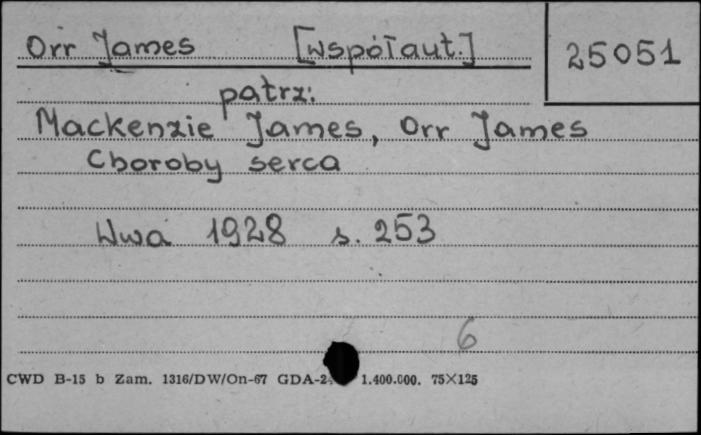 Orr James [współaut.] 25051
patrz:
Mackenzie James, Orr James
Choroby serca
Wwa 1928 s. 253
6
CWD B-15 b Zam. 1316/DW/On-67 GDA-2 1.400.000. 75×125